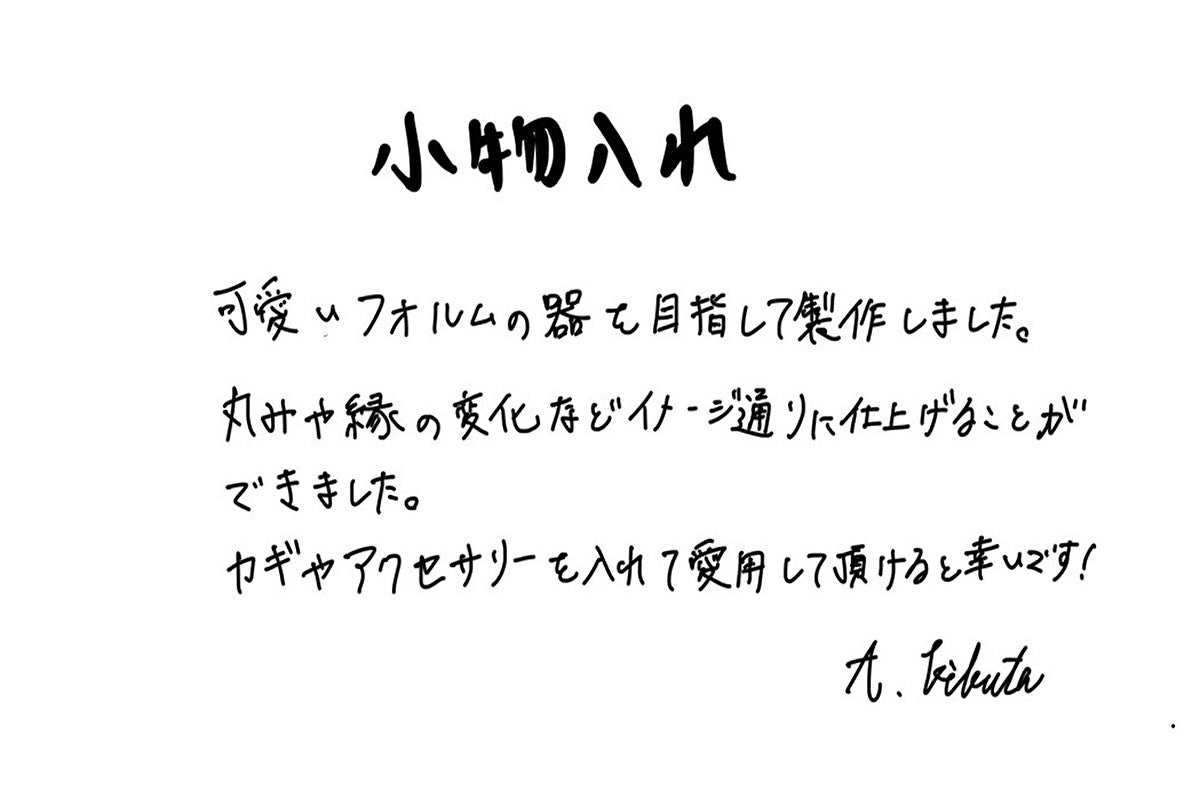 小物入れ
可愛いフォルムの器を目指して製作しました。
丸みや縁の変化などイメージ通りに仕上げることが
できました。
カギやアクセサリーを入れて愛用して頂けると幸いです!
A. Kikuta